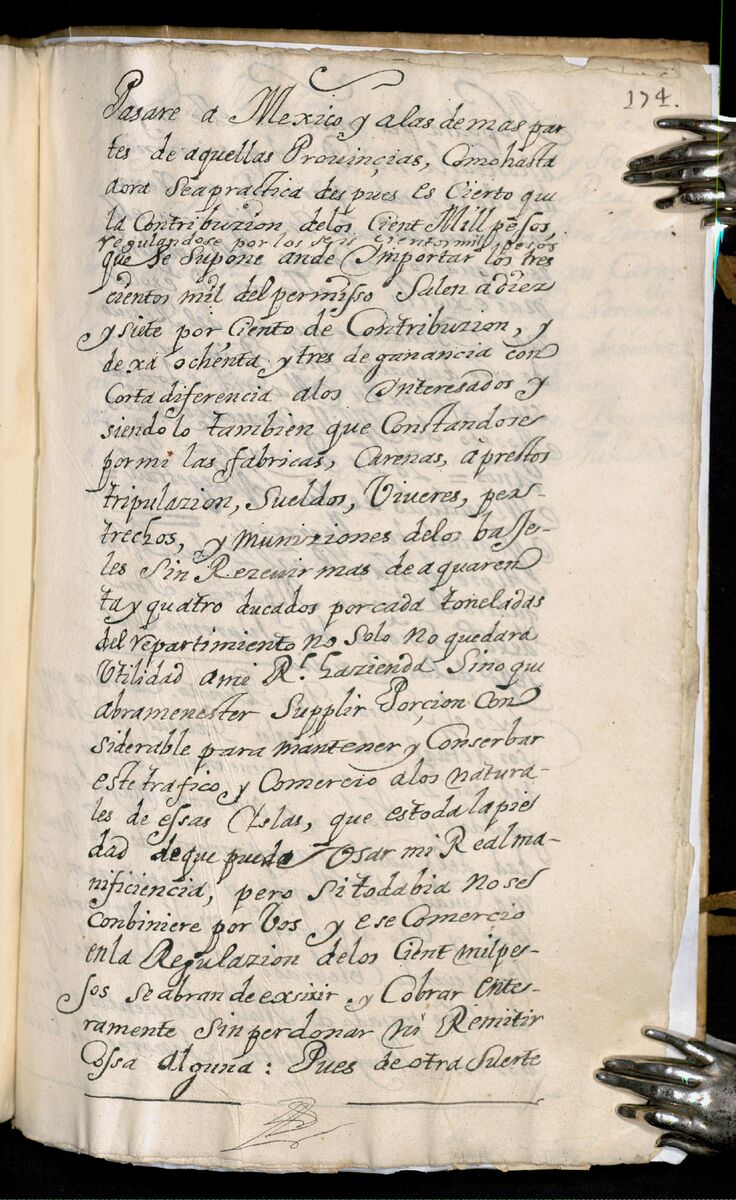 174.
Pasare a Mexico y alas demas par
tes de aquellas Provinçias, Como hasta
aora Sea practica des pues es Cierto que
la Contribuzion delos Cient Mill pesos,
regulandose por los seis Cientos mil pesos
que se Supone ande Importar los tres
cientos mil del permisso Salen a diez
y siete por Ciento de Contribuzion, y
dexa ochenta y tres de ganancia con
Corta diferencia alos Interesados y
siendo lo tambien que Constandose
por mi las fabricas, Carenas, aprestos
tripulazion, Sueldos, Viveres, per-
trechos, y muniziones delos baJe-
les Sin Rezevir mas de a quaren
ta y quatro ducados por cada toneladas
del repartimiento no Solo no quedara
Utilidad ami Rl. hazienda Sino que
abramenester Supplir Porçion Con
siderable para mantener y Conserbar
este trafico y Comercio alos natura-
les de essas Islas, que estoda la pie
dad de que puede Usar mi Real ma-
nificiencia, pero Si todabia no se
Conbiniere por Vos y ese Comerçio
enla Regulazion delos Cient mil pe-
sos se abran de exsixir y Cobrar ente-
ramente Sin perdonar ni Remitir
Cossa alguna: Pues de otra Suerte